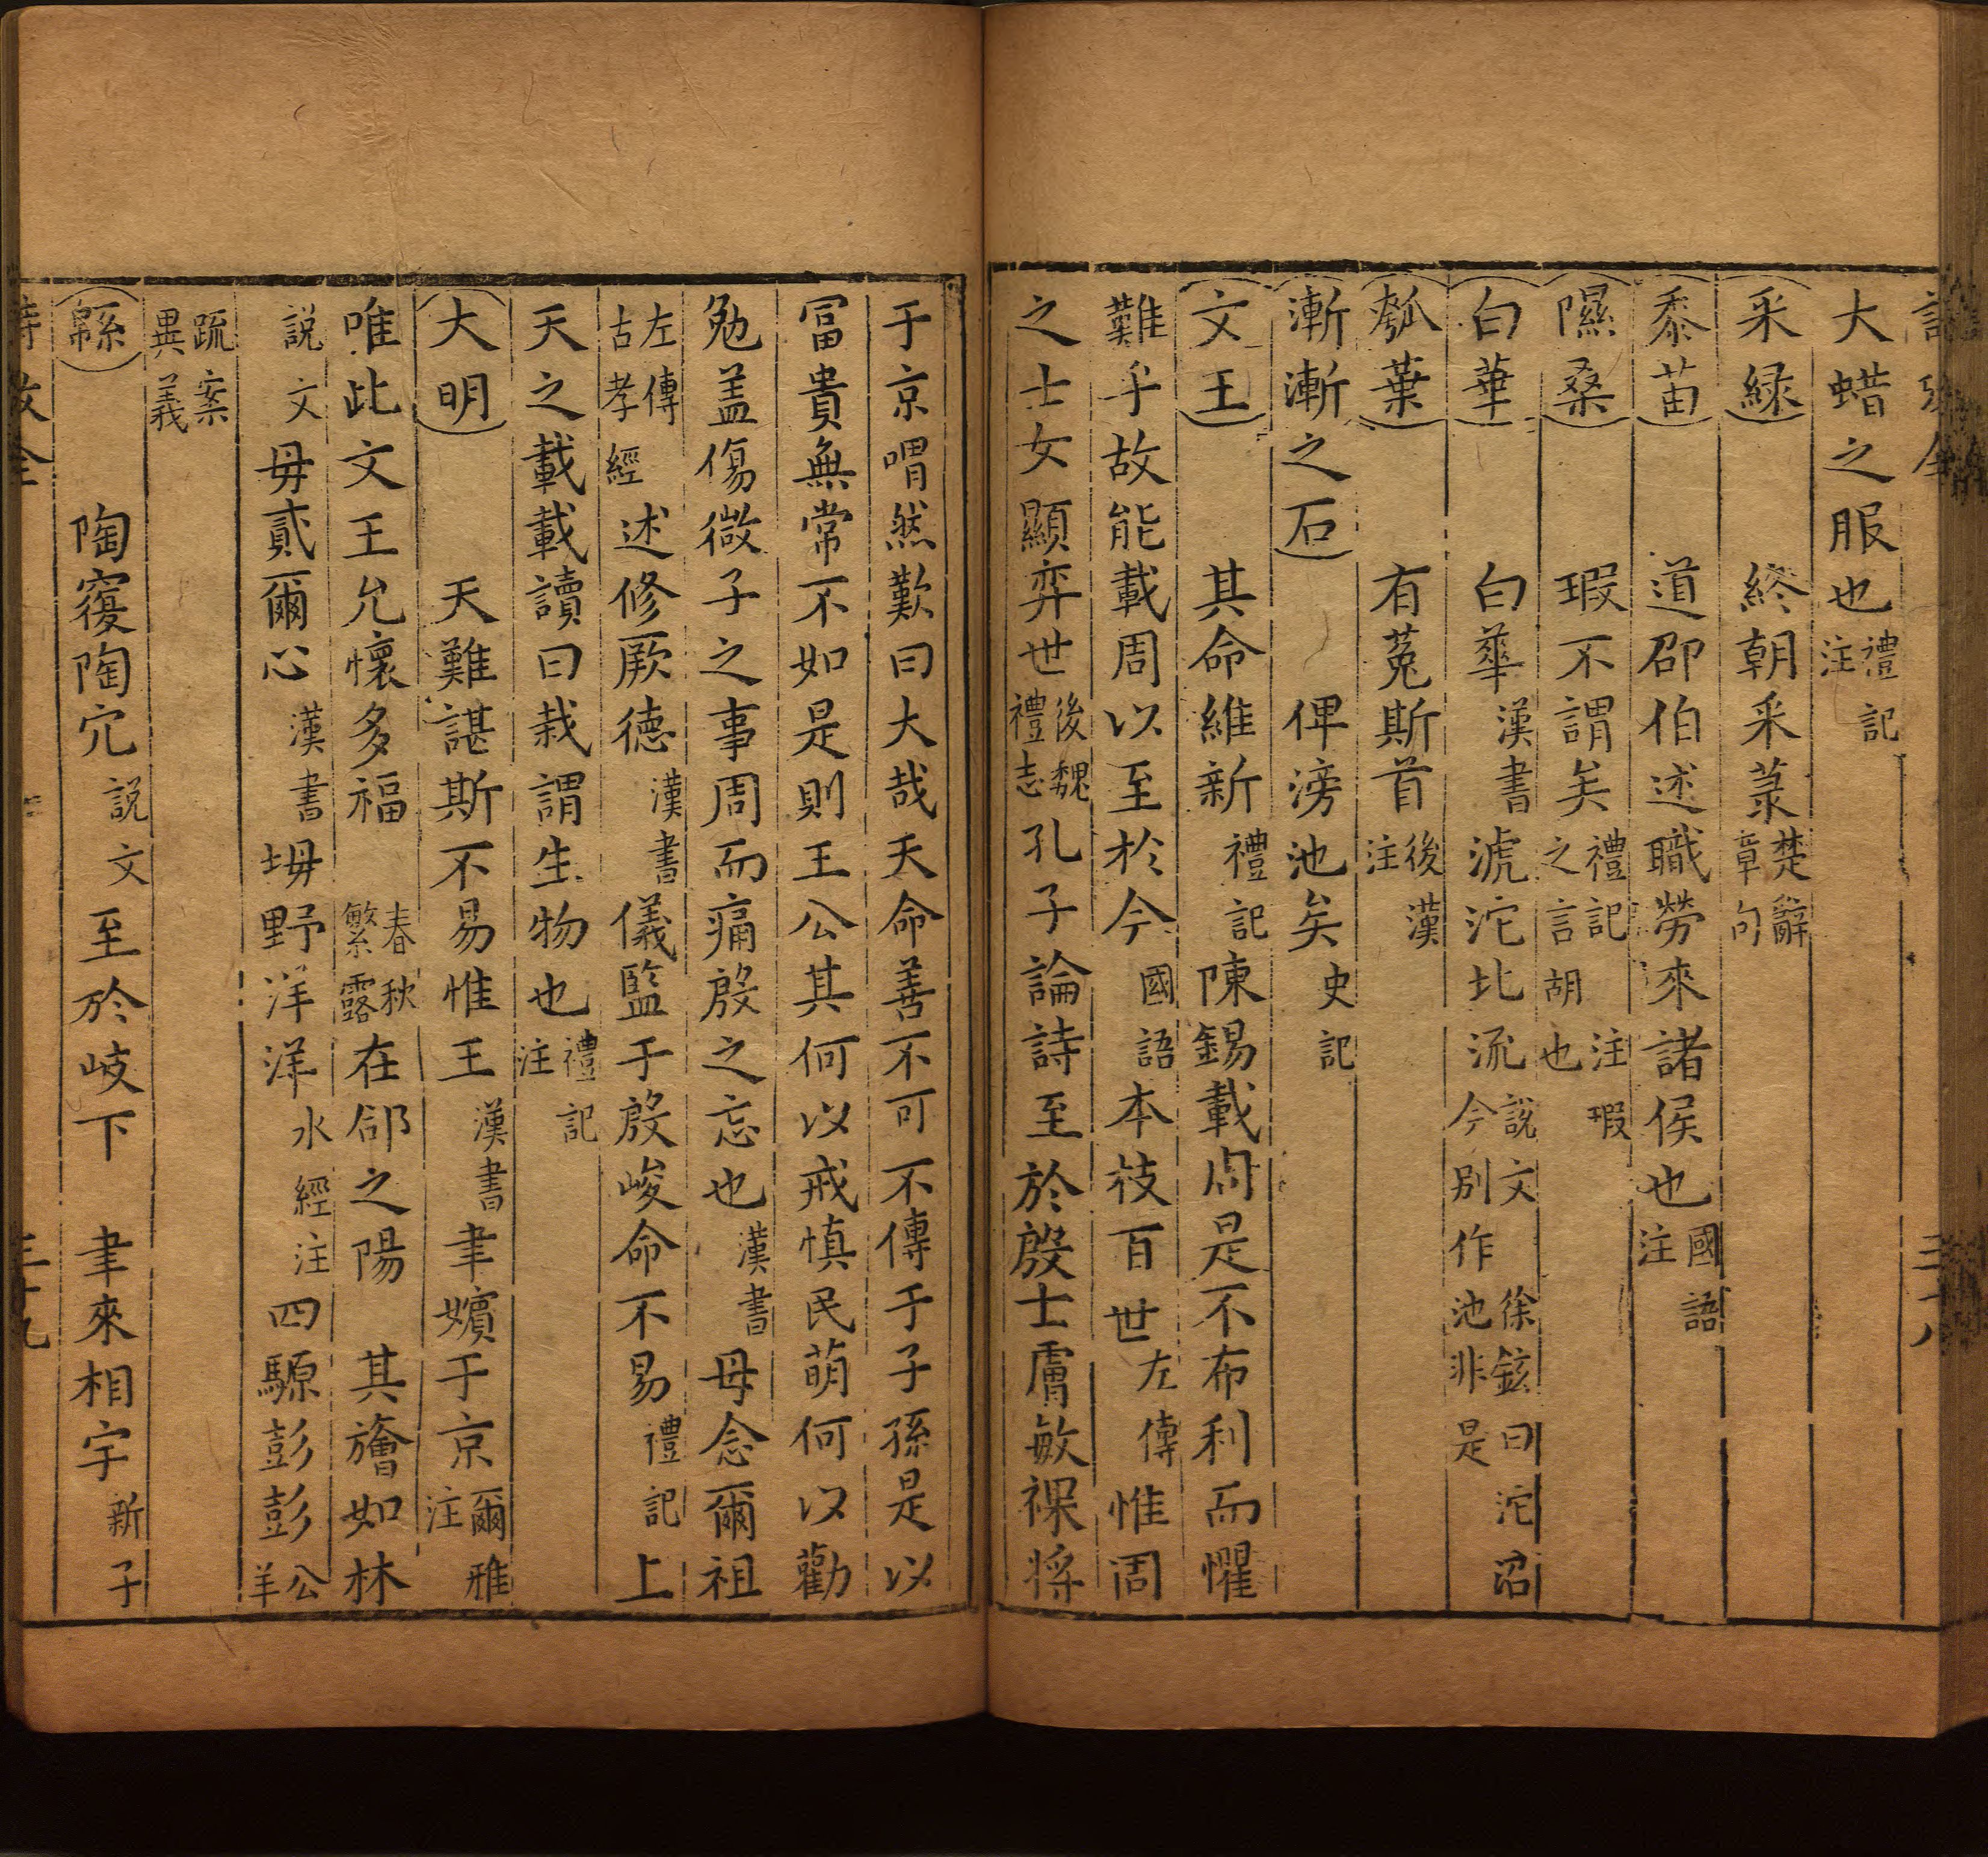 大蜡之服也禮記注
采緑　終朝采菉楚辭章句
黍苗　道邵伯述職勞來諸侯也國語注
隰桑　瑕不謂矣禮記注瑕之言胡也
白華　白華漢書滮沱北流説文徐鉉曰沱沼今別作池非是
瓠葉　有菟斯首後漢注
漸漸之石　俾滂池矣史記
文王　其命維新禮記陳錫載周是不布利而懼
難乎故能載周以至於今國語本枝百世左傳惟周
之士女顯弈世後魏禮志孔子論詩至於殷士膚敏祼將
于京喟然歎曰大哉天命善不可不傳于子孫是以
冨貴無常不如是則王公其何以戒慎民萌何以勸
勉盖傷微子之事周而痛殷之忘也漢書毋念爾祖
左傳古孝經述修厥德漢書儀監于殷峻命不易禮記上
天之載載讀曰栽謂生物也禮記注
大明　天難諶斯不易惟王漢書聿嬪于京爾雅注
唯此文王允懷多福春秋繁露在郃之陽　其旝如林
説文毋貳爾心漢書坶野洋洋水經注四騵彭彭公羊
疏案異義
緜　陶𥨍陶穴説文至於岐下　聿來相宇新子